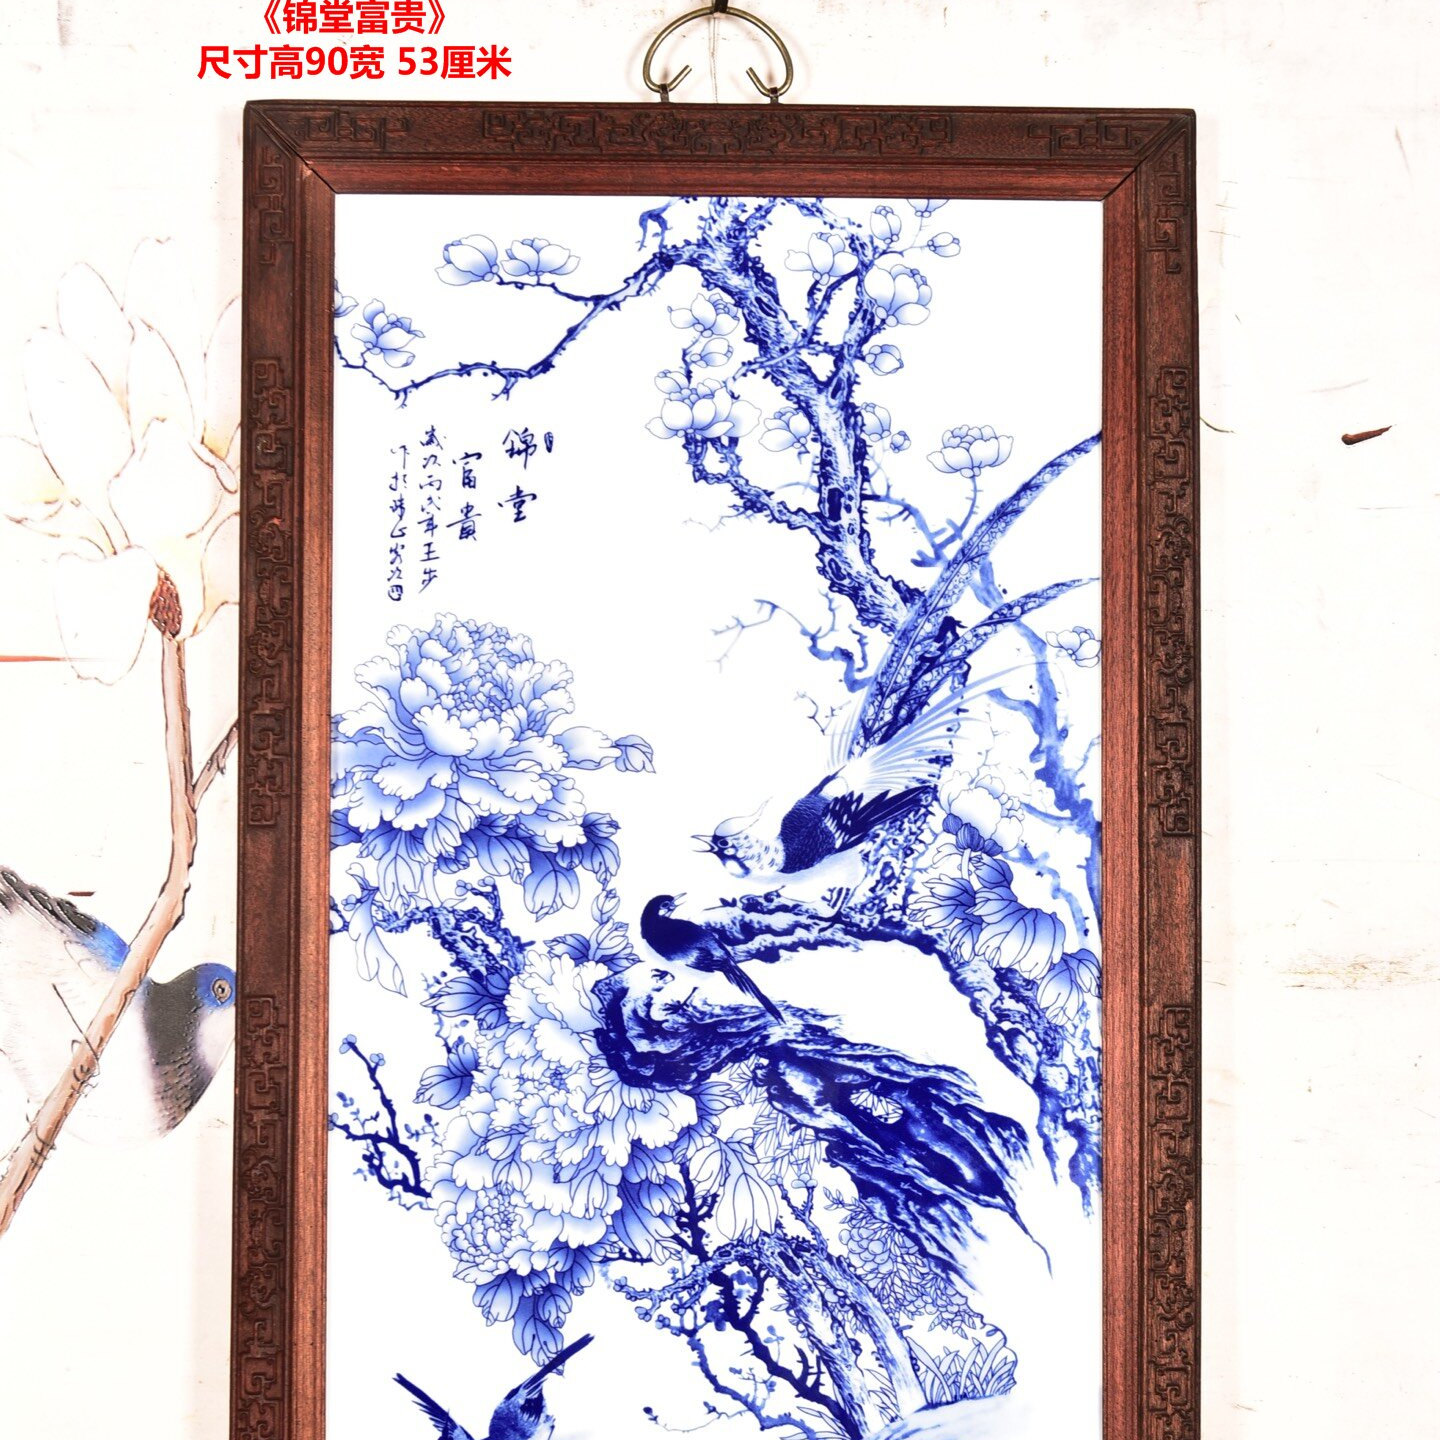 《锦堂富贵》
尺寸高90宽 53厘米
錦堂
富貴
歲次丙戌年王步